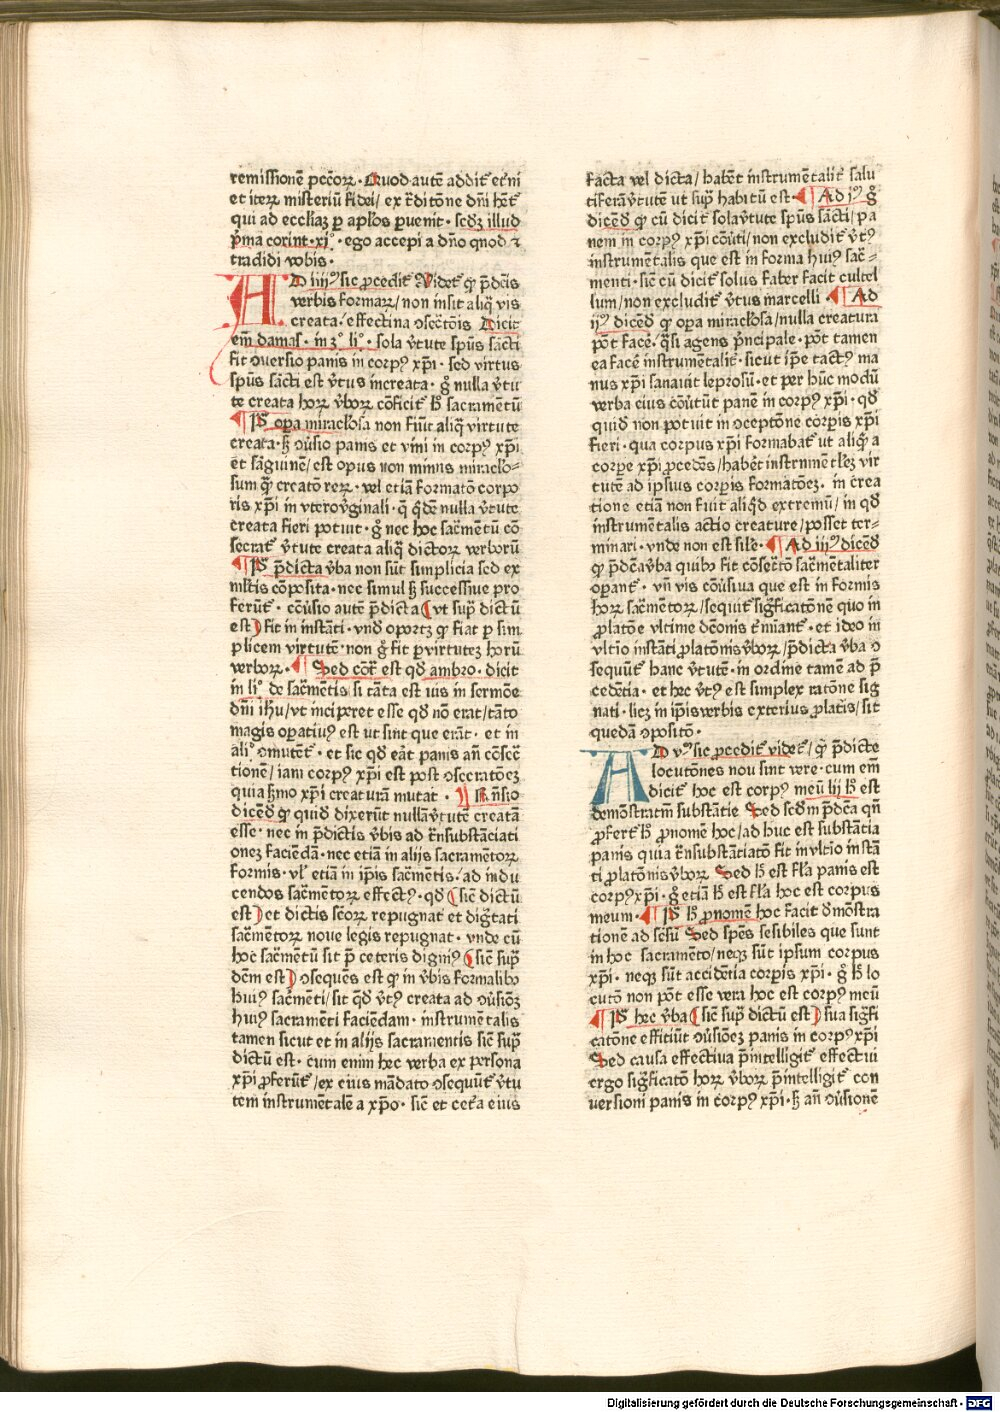 remissionē pccōꝝ · Quod autē addit̄ et̄ni
et iteꝝ misteriū fidei / ex t̄ditōne dn̄i hēt̄
qui ad eccliaꝫ ꝑ apl̄os ꝑuenit · scdꝫ illud
p̄ma corint · xi° · ego accepi a dn̄o qnod ⁊
tradidi vobis ·
AD iiijꝰ sic ꝓcedit̄ Videt̄ ꝙ p̄dc̄is
verbis formaꝝ / non insit aliq̄ vis
creata / effectina ꝯsecr̄tōis Dicit
em̄ damas̄ · in 3° li° · sola v̄tute spūs sācti
fit ꝯversio panis in corpꝰ xp̄i · sed virtus
spūs sācti est v̄tus increata · g̊ nulla v̄tu
te creata hoꝝ v̄boꝝ cōficit̄ h̄ sacramētū
¶ P̄ꝰ opa miracl̄osa non fiūt aliq̄ virtute
creata · ꝫ ꝯūsio panis et vini in corpꝰ xp̄i
et sāguinē / est opus non minus miracl̄o⸗
sum q̄ꝫ creatō reꝝ · vel etiā formatō corpo
ris xp̄i in vtero v̄ginali · q̄ q̄dē nulla v̄tute
creata fieri potuit · g̊ nec hoc sac̄mētū cō
secrat̄ v̄tute creata aliq̄ dictoꝝ verborū
¶ P̄ꝰ p̄dicta v̄ba non sūt simplicia sed ex
ml̄tis cōposita · nec simul ꝫ successiue pro
ferūt̄ · cōūsio autē p̄dicta ( vt supͣ dictū
est ) fit in instāti · vnd̄ oportꝫ ꝙ fiat ꝑ sim
plicem virtutē · non g̊ fit ꝑ virtuteꝫ horū
verboꝝ · ¶ Sed cōt̄ est qd̄ ambro · dicit
in li° de sac̄mētis si tāta est uis in sermōe
dn̄i ih̄u / vt inciperet esse qd̄ nō erat / tāto
magis opatiuꝰ est ut sint que erāt · et in
ali° ꝯmutēt̄ · et sic qd̄ eāt panis an̄ cōsec̄
tionē / iam corpꝰ xp̄i est post ꝯsecratōeꝫ
quia ꝫmo xp̄i creaturā mutat · ¶ Rn̄sio
dicēd̄ ꝙ quid̄ dixerūt nullā v̄tutē creatā
esse · nec in p̄dictis v̄bis ad tn̄substāciati
oneꝫ faciēdā · nec etiā in alijs sacramētoꝝ
formis · vl̄ etiā in ip̄is sacmētis / ad indu
cendos sac̄mētoꝝ effectꝰ · qd̄ ( sic̄ dictū
est ) et dictis sc̄oꝝ repugnat et dig̅tati
sac̄mētoꝝ noue legis repugnat · vnde cū
hoc sac̄mētū sit p̄ ceteris digniꝰ ( sic̄ supͣ
dc̄m est ) ꝯsequēs est ꝙ in v̄bis formalibꝰ
huiꝰ sac̄mēti / sit q̄d̄ v̄tꝰ creata ad ꝯūsiōꝫ
huiꝰ sacramēti faciēdam · instrumētalis
tamen sicut et in alijs sacramentis sic̄ supͣ
dictū est · cum enim hec verba ex persona
xp̄i ꝓferūt̄ / ex eius mādato ꝯsequūt̄ v̄tu
tem instrumētalē a xp̄o · sic̄ et cet̄a eius
facta vel dicta / habēt instrumētalit̄ salu
tiferā v̄tutē ut supͣ habitū est · ¶ Ad jꝰ g̊
dicēd̄ ꝙ cū dicit̄ sola v̄tute spūs sācti / pa
nem in corpꝰ xp̄i cōuti / non excludit̄ v̄tꝰ
instrumētalis que est in forma huiꝰ sac̄⸗
menti · sic̄ cū dicit̄ solus faber facit cultel
lum / non excludit̄ v̄tus marcelli · ¶ Ad
ijꝰ dicēd̄ ꝙ opa miracl̄osa / nulla creatura
pōt facē · q̄si agens p̄ncipale · pōt tamen
ea facē instrumētalit̄ · sicut ip̄e tactꝰ ma
nus xp̄i sanauit leprosū · et per hūc modū
verba eius cōūtūt panē in corpꝰ xp̄i · qd̄
quid̄ non potuit in ꝯceptōne corp̄is xp̄i
fieri · qua corpus xp̄i formabat̄ ut aliq̄ a
corpe xp̄i ꝓcedēs / habēt instrnmētleꝫ vir
tutē ad ipsius corp̄is formatōeꝫ · in crea
tione etiā non fuit aliq̄d extremū / in qd̄
instrumētalis actio creature / posset ter⸗
minari · vnde non est sil̄e · ¶ Ad iijꝰ dicēd̄
ꝙ p̄dcā v̄ba quibꝰ fit cōsec̄tō sac̄mētaliter
opant̄ · vn̄ vis cōūsiua que est in formis
hoꝝ sac̄mētoꝝ / sequit̄ sig̅ficatōnē quo in
ꝓlatōe vltime dcōnis t̄miant̄ · et ideo in
vltīo instāti ꝓlatōnis v̄boꝝ / p̄dicta v̄ba ꝯ
sequūt̄ hanc v̄tutē · in ordine tamē ad p̄
cedētia · et hec v̄tꝰ est simplex ratōne sig
nati · licꝫ in ip̄is verbis exterius ꝓlatis / sit
quedā ꝯpositō ·
AD vꝰ sic ꝓcedit̄ videt̄ / ꝙ p̄dicte
locutōnes nou sint vere · cum em̄
dicit̄ hoc est corpꝰ meū lij h̄ est
demōstratm̄ substātie Sed scdm p̄dc̄a qn̄
ꝓfert̄ h̄ ꝓnomē hoc / ad huc est substātia
panis quia tn̄substātiatō fit in vltīo instā
ti ꝓlatōnis v̄boꝝ Sed h̄ est fl̄a panis est
corpꝰ xp̄i · g̊ etiā h̄ est fl̄a hoc est corpus
meum · ¶ P̄ꝰ h̄ ꝓnomē hoc facit dmōstra
tionē ad sēsū Sed spēs sēsibiles que sunt
in hoc sacramēto / neqꝫ sūt ipsum corpus
xp̄i · neqꝫ sūt accidētia corp̄is xp̄i · g̊ h̄ lo
cutō non pōt esse vera hoc est corpꝰ meū
¶ P̄ꝰ hec v̄ba ( sic̄ supͣ dictū est ) sua sig̅fi
catōne efficiūt ꝯūsiōeꝫ panis in corpꝰ xp̄i
Sed causa effectiva p̄intelligit̄ effectui
ergo sig̅ficatō hoꝝ v̄boꝝ p̄intelligit̄ con
versioni panis in corpꝰ xp̄i · ꝫ an̄ ꝯūsionē
Digitalisierung gefördert durch die Deutsche Forschungsgemeinschaft · DFG